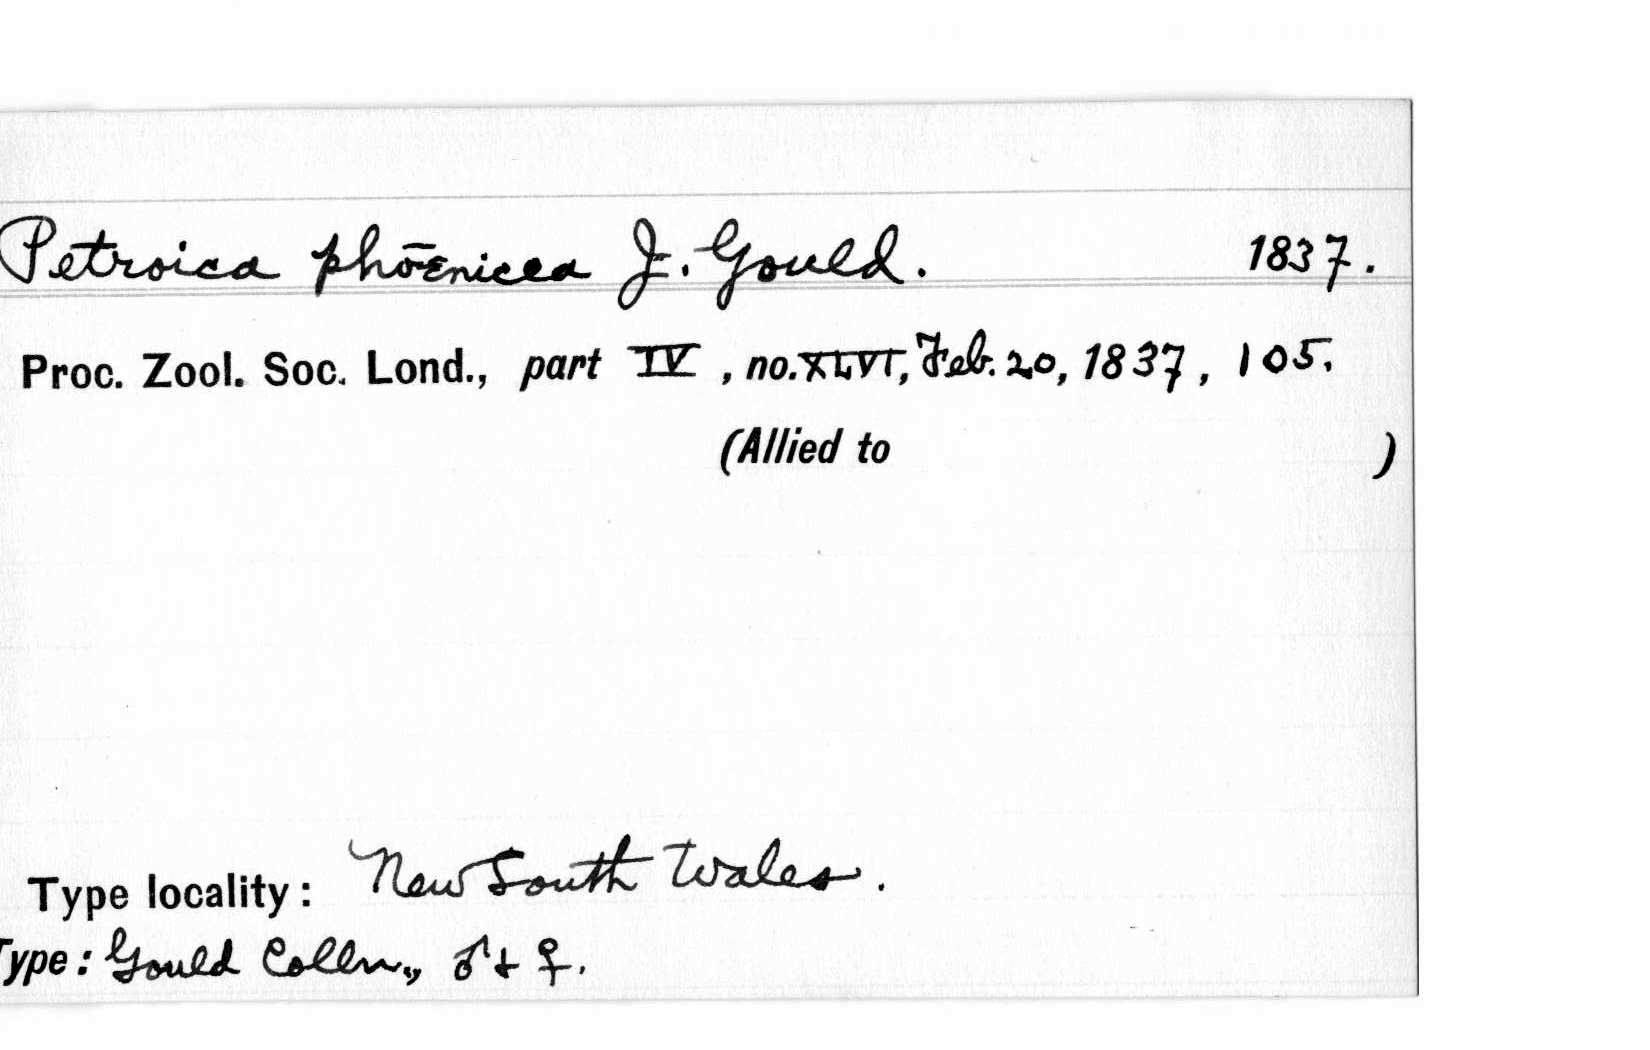 Petroica phœnicea J. Gould. 1837.
Proc. Zool. Soc. Lond., part IV, no. XLVI, Feb. 20, 1837, 105.
(Allied to )
Type locality: New South Wales.
Type: Gould Colln., ♂ + ♀.